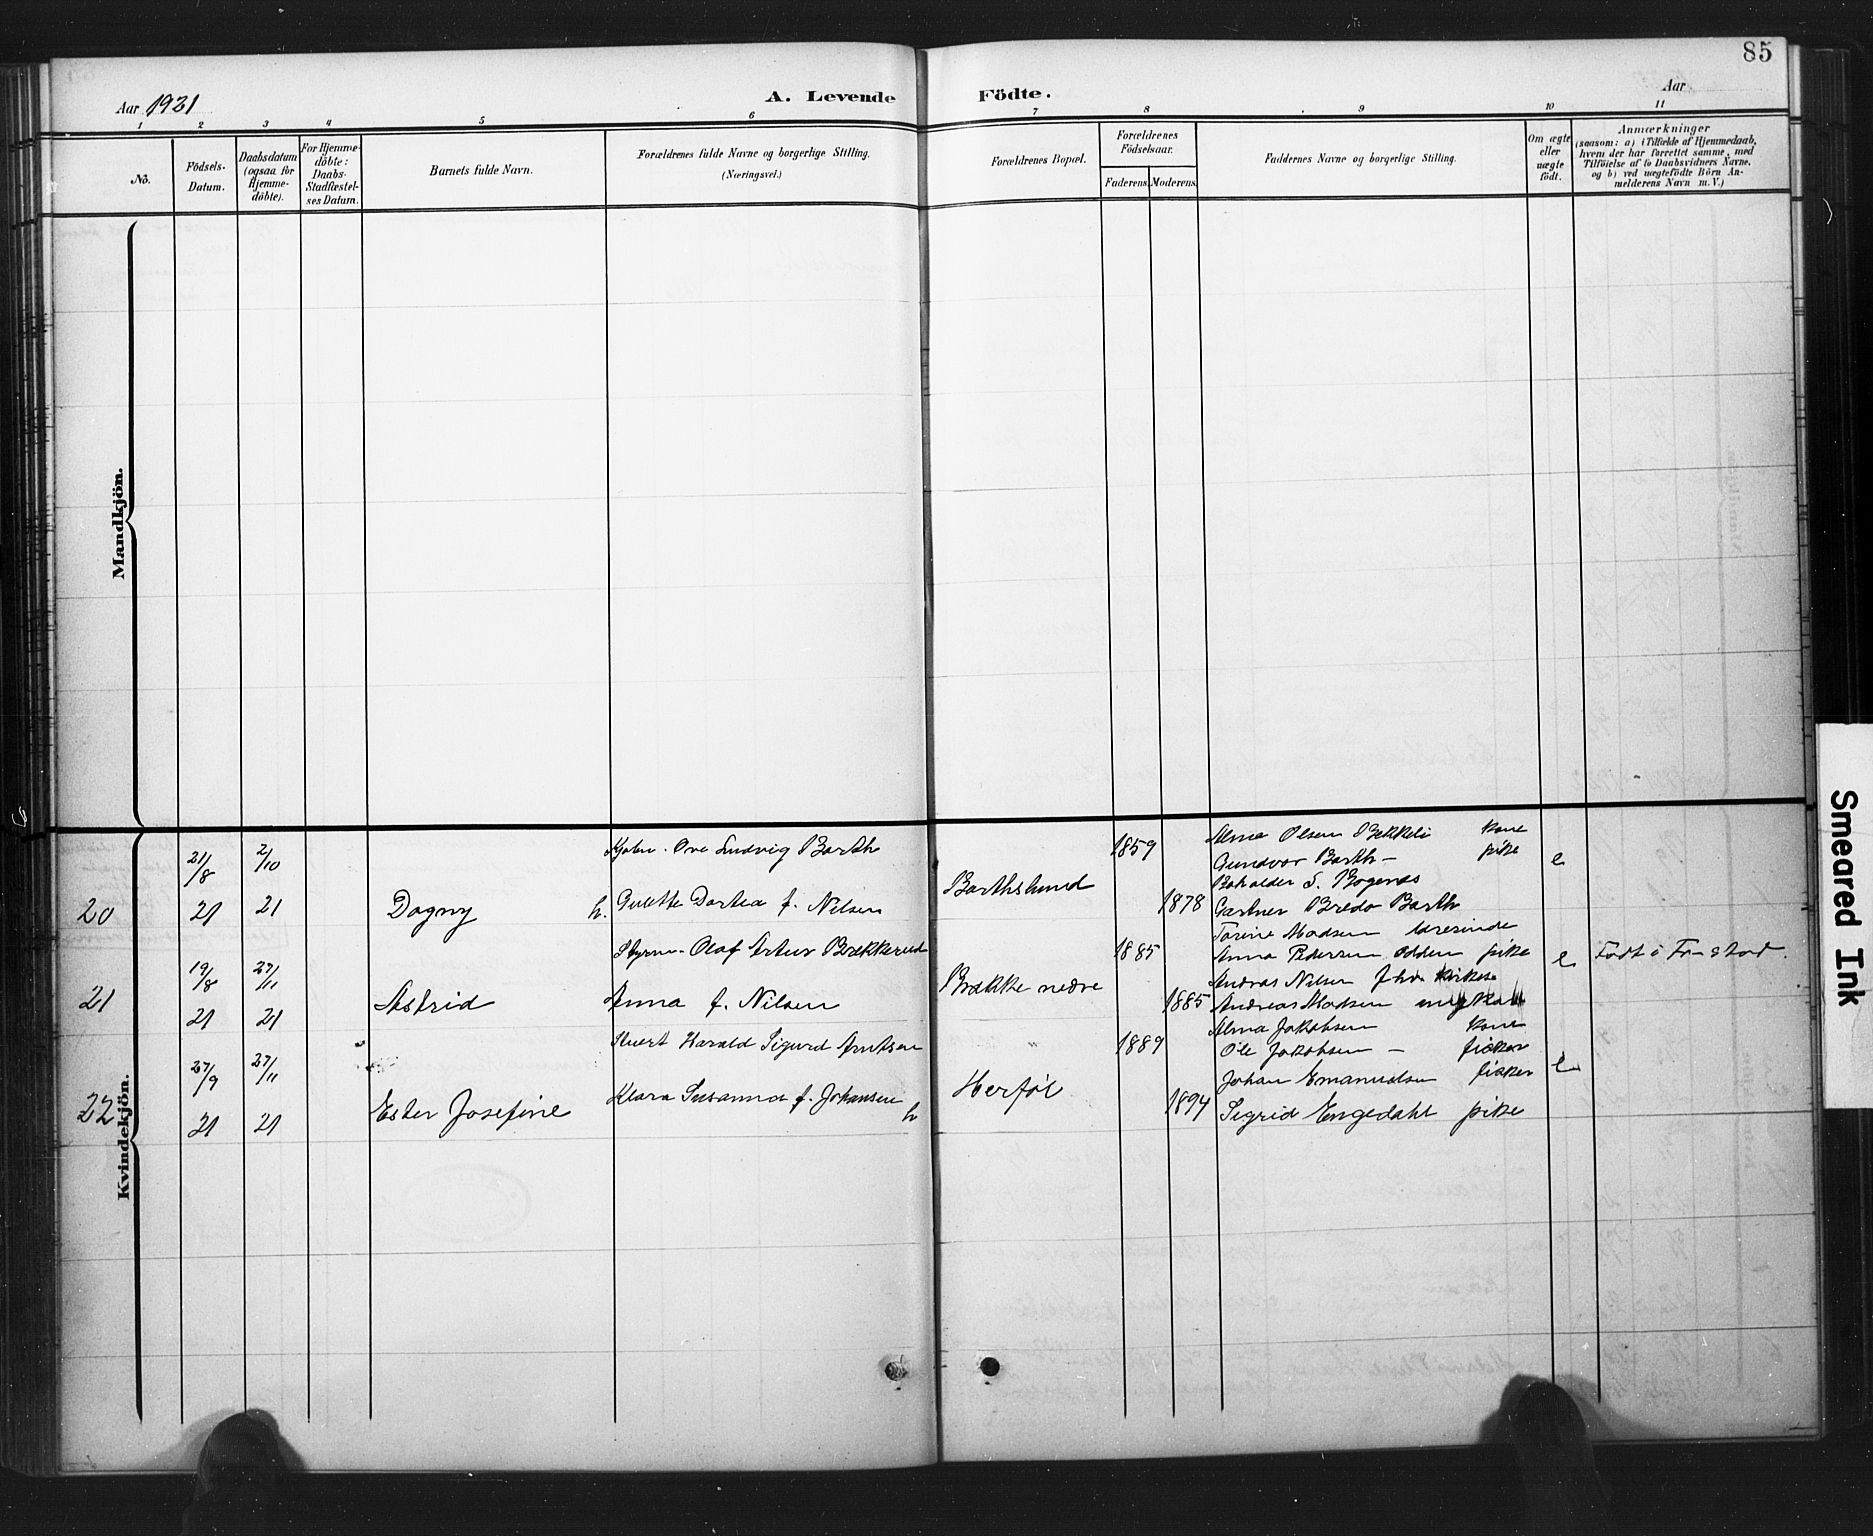 85
Aar 1921
A. Levende
Födte.
Aar
1 2 3 4 5 6 7 8 9 10 11
No.
Födsels-
Datum.
Daabsdatum
(ogsaa for
Hjemme-
döbte).
For Hjemme-
döbte:
Daabs-
Stadfæstel-
ses Datum.
Barnets fulde Navn.
Forældrenes fulde Navne og borgerlige Stilling.
(Næringsvei.)
Forældrenes Bopæl.
Forældrenes
Födselsaar.
Faderens. Moderens.
Faddernes Navne og borgerlige Stilling.
Om ægte
eller
uægte
födt.
Anmærkninger
(saasom: a) i Tilfælde af Hjemmedaab,
hvem der har forrettet samme, med
Tilföielse af to Daabsvidners Navne,
og b) ved uægtefödte Börn An-
melderens Navn m. V.)
Mandkjön.
Kvindekjön.
20
21/8 21
2/10 21
Dagny
h.
Ove Ludvig Barth
Dortea f. Nilsen
Barthslund
1859
1878
Alma Olsen Bekkeli kone
Gundvor Barth – pike
S. Bogenæs
Gartner Bredo Barth
e
21
19/8 21
27/11 21
Astrid
Styrm. Olaf Artur Brækkerud
Anna f. Nilsen
Brække nedre
1885
1885
Torine Madsen
Anna Pedersen Odden pike
Andras Nilsen
Andreas Madsen
e
Födt i Fr-stad.
22
27/9 21
27/11 21
Ester Josefine
Harald Sigurd Arntsen
Klara Susanna f. Johansen
h
Herföl
1889
1894
Alma Jakobsen kone
Ole Jakobsen – fisker
Johan Emanuelsen fisker
Sigrid Engedahl pike
e
Smeared Ink